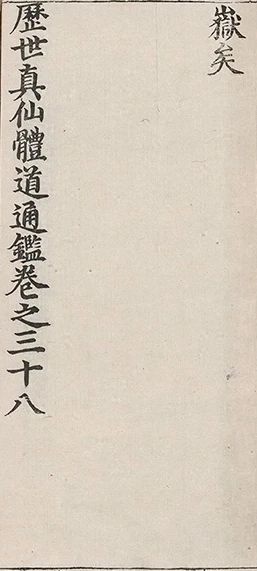 嶽矣
歷世真仙體道通鑑卷之三十八